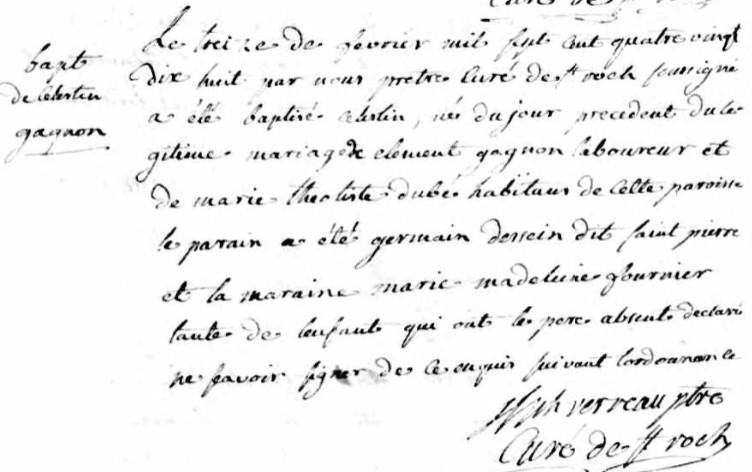 bapt
de Celestin
gagnon
Le treize de fevrier mil sept cent quatre vingt
dix huit par nous pretre Curé de st roch soussigné
a été baptisé celestin, né du jour precedent du le
gitime mariage de clement gagnon laboureur et
de marie theotiste dubé habitans de cette paroisse
le parain a été germain dessein dit saint pierre
et la maraine marie madeleine fournier
tante de lenfant qui ont le pere absent declaré
ne savoir signer de ce enquis suivant lordonnance
Jsph verreau ptre
Curé de st roch